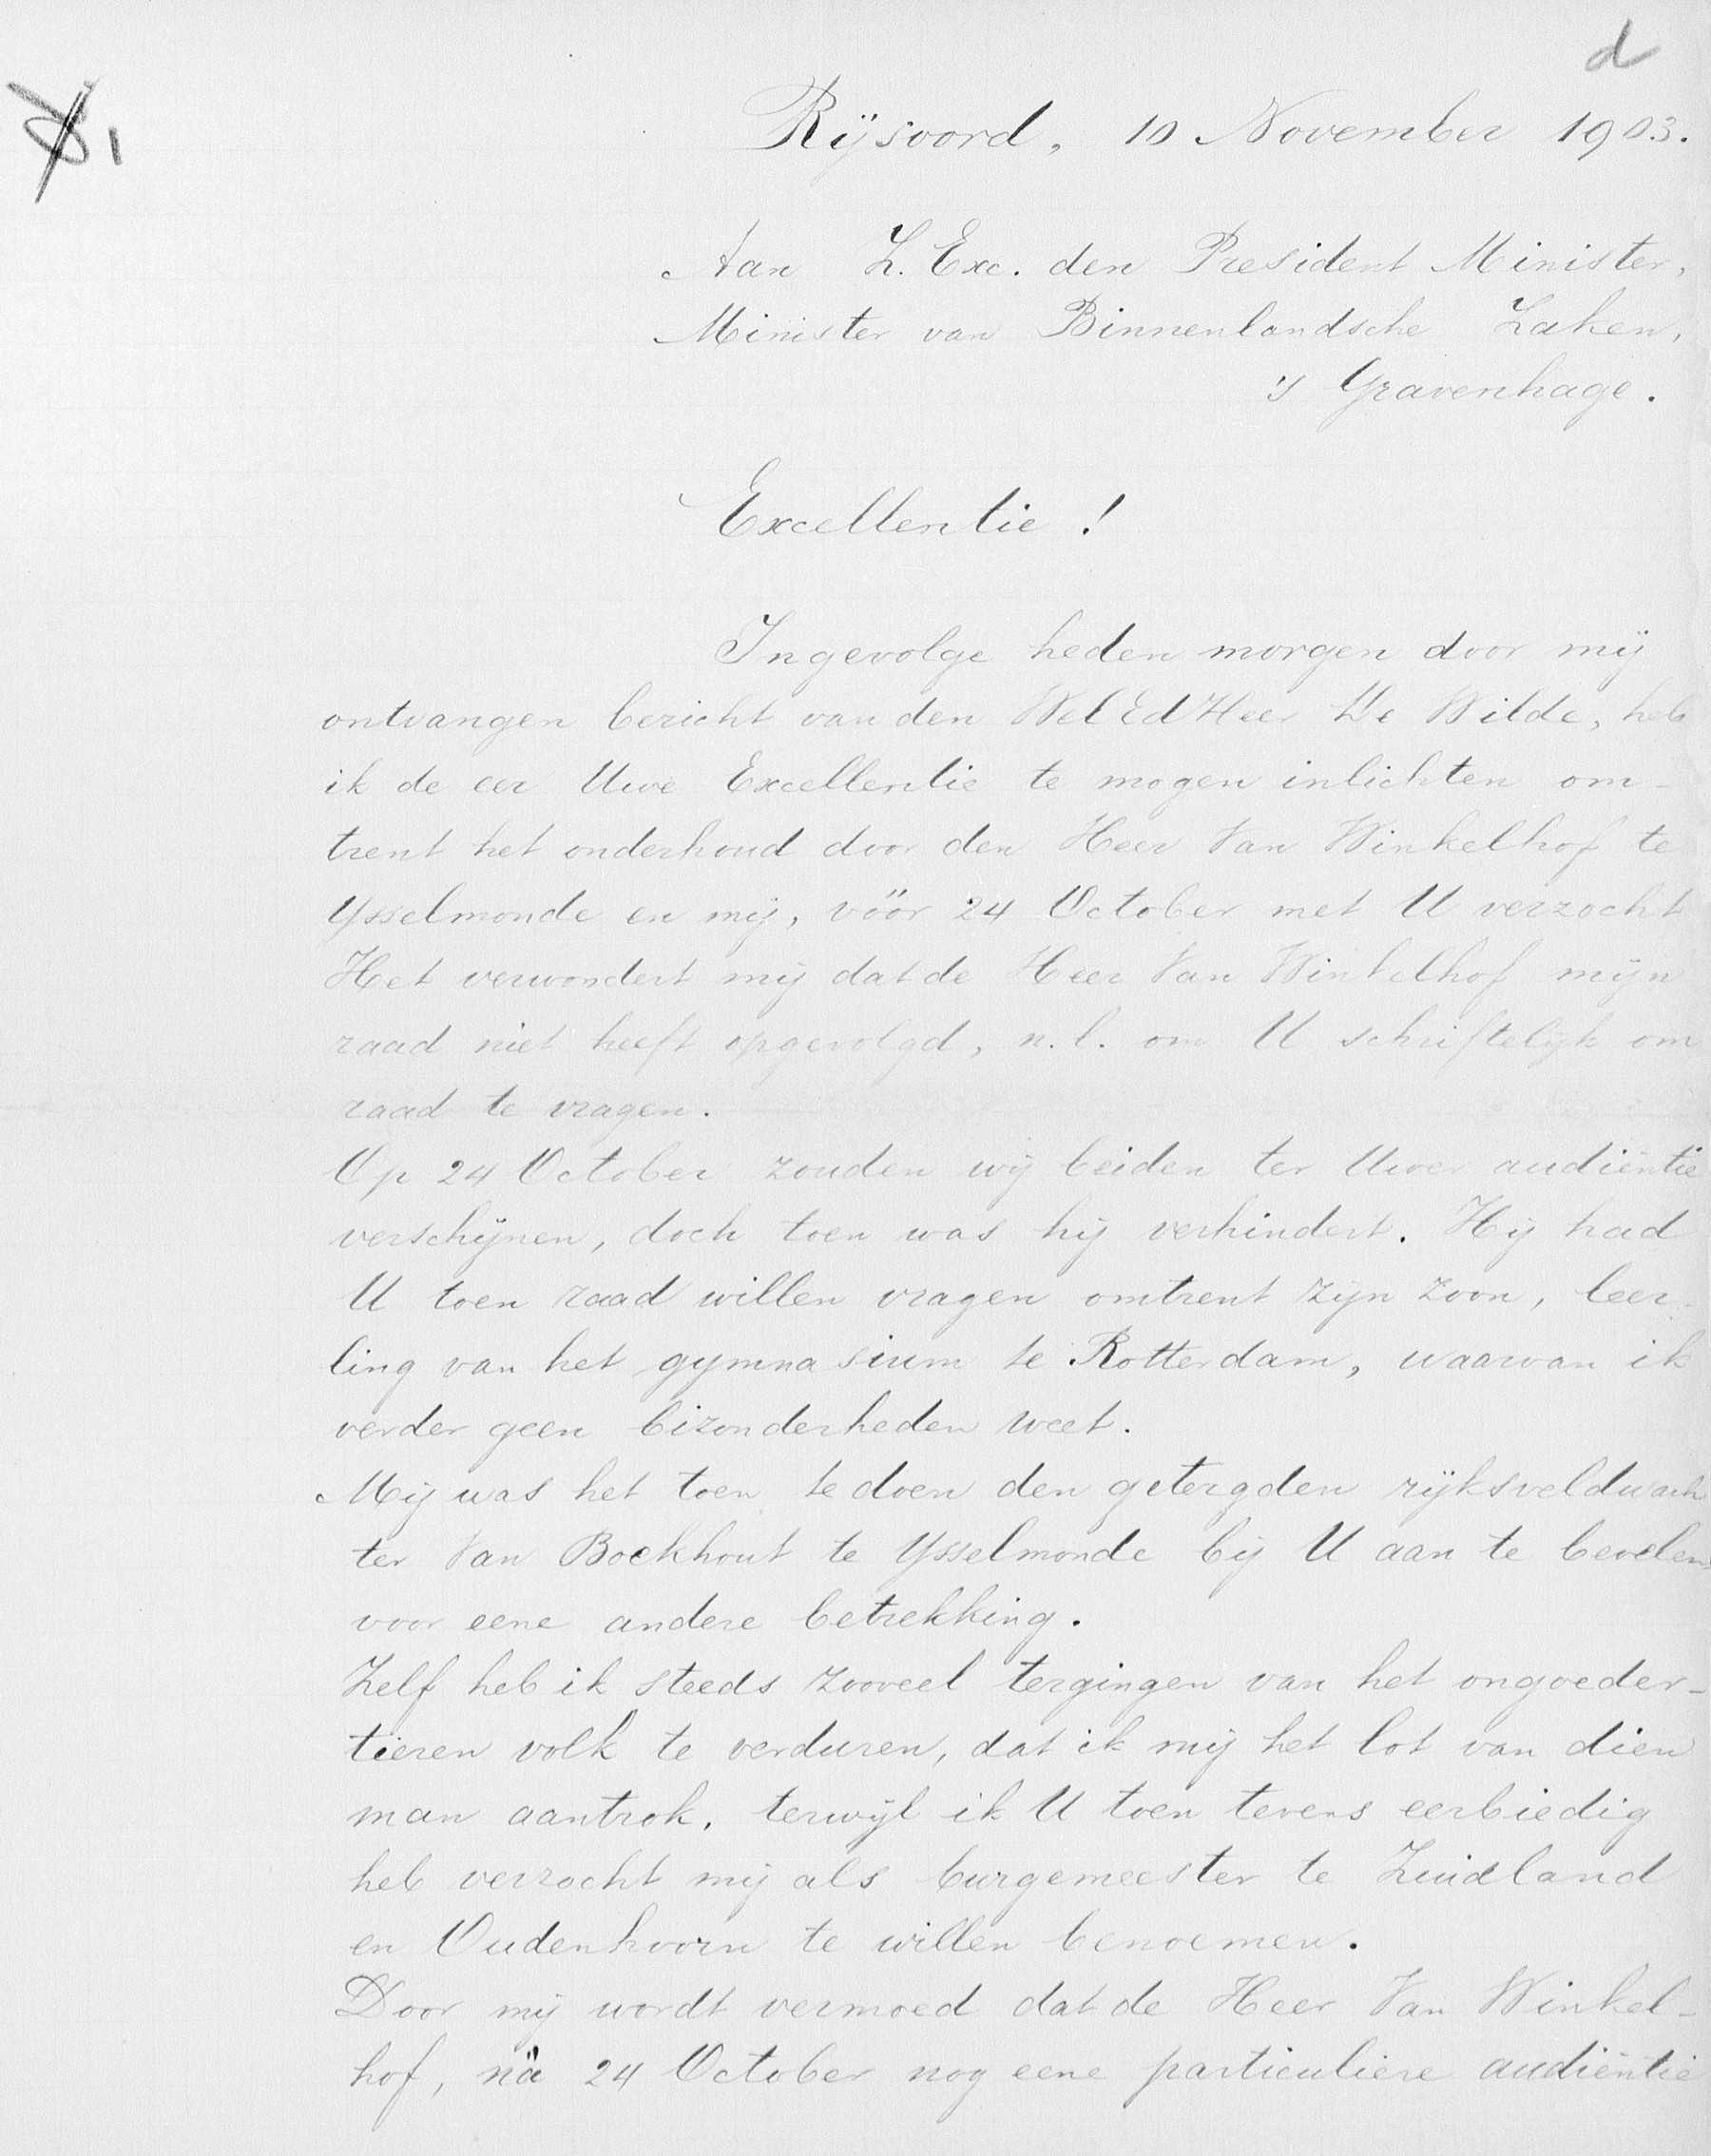 d
Rijsoord, 10 November 1903.
Aan Z. Exc. den President Minister,
Minister van Binnenlandsche Zaken,
's Gravenhage.
Excellentie!
Ingevolge heden morgen door mij
ontvangen bericht van den WelEdHeer De Wilde, heb
ik de eer Uwe Excellentie te mogen inlichten om-
trent het onderhoud door den Heer Van Winkelhof te
Ysselmonde en mij, vóór 24 October met U verzocht
Het verwondert mij dat de Heer Van Winkelhof mijn
raad niet heeft opgevolgd, n.l. om U schriftelijk om
raad te vragen.
Op 24 October zouden wij beiden ter Uwer audiëntie
verschijnen, doch toen was hij verhindert. Hij had
U toen raad willen vragen omtrent zijn zoon, leer-
ling van het gymnasium te Rotterdam, waarvan ik
verder geen bizonderheden weet.
Mij was het toen te doen den getergden rijksveldwach
ter Van Boekhout te Ysselmonde bij U aan te bevelen
voor eene andere betrekking.
Zelf heb ik steeds zooveel tergingen van het ongoeder-
tieren volk te verduren, dat ik mij het lot van dien
man aantrok, terwijl ik U toen tevens eerbiedig
heb verzocht mij als burgemeester te Zuidland
en Oudenhoorn te willen benoemen.
Door mij wordt vermoed dat de Heer Van Winkel-
hof, ná 24 October nog eene particuliere audiëntie